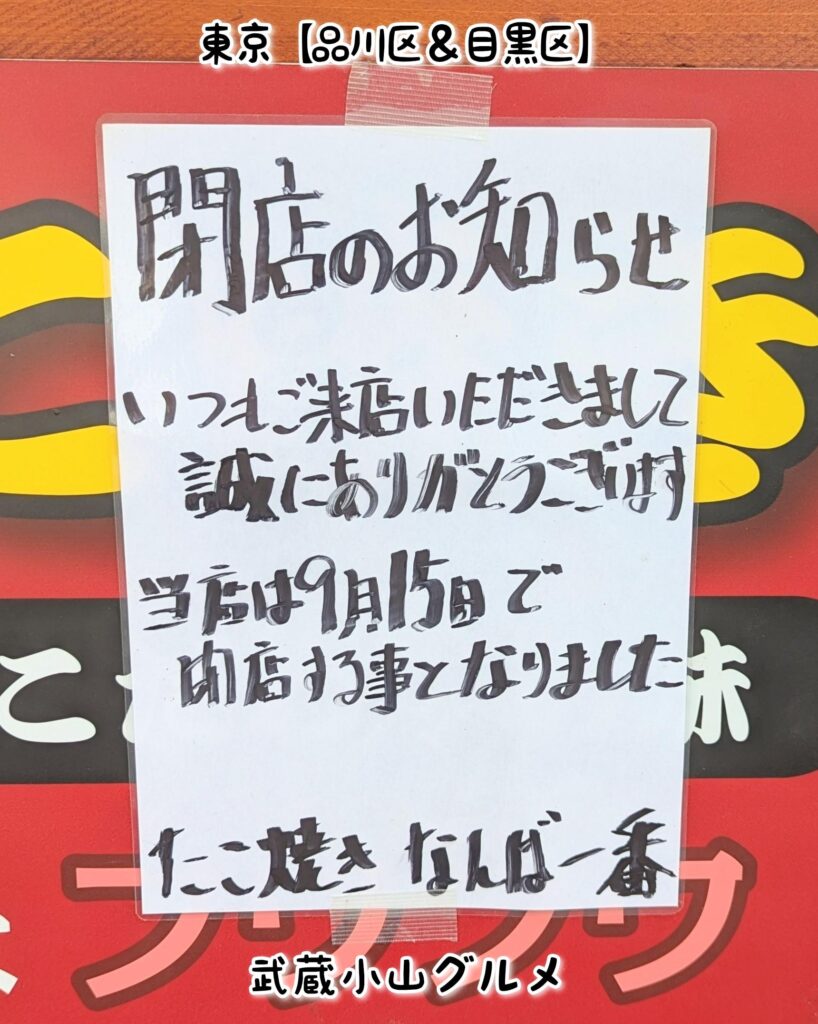 東京【品川区&目黒区】
閉店のお知らせ
いつもご来店いただきまして
誠にありがとうございます
当店は9月15日で
閉店する事となりました
たこ焼き なんば一番
武蔵小山グルメ